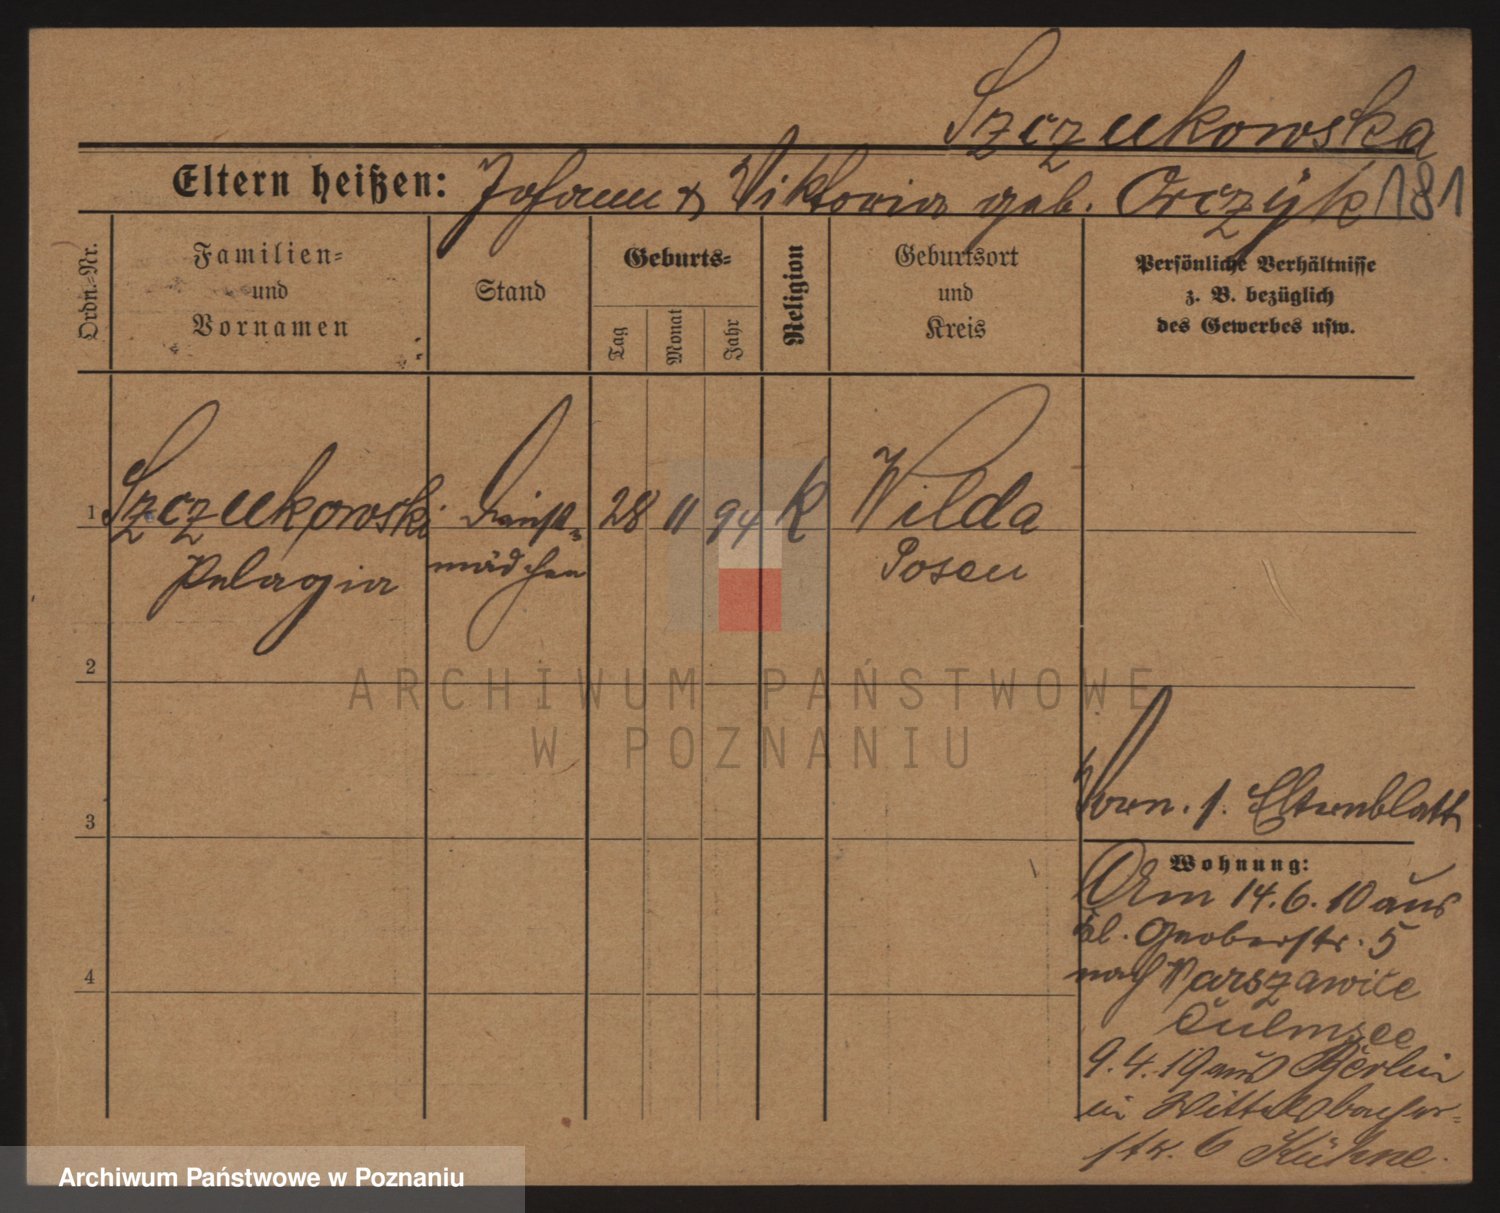 Szczukowska
Eltern heißen: Johann & Viktoria geb. Orczyk 181
Ordn.-Nr.
Familien-
und
Vornamen
Stand
Geburts-
Tag
Monat
Jahr
Religion
Geburtsort
und
Kreis
Persönliche Verhältnisse
z. B. bezüglich
des Gewerbes usw.
1 Szczukowski Dienst- 28 11 94 k Wilda
Pelagia mädchen Posen
2
3
4
Vorn. s. Elternblatt
Wohnung:
Am 14.6.10 aus
kl. Gerberstr. 5
nach Warszawice
Culmsee
9.4.19 aus Berlin
in Wittelsbacher-
str. 6 Kühne.
ARCHIWUM PAŃSTWOWE
W POZNANIU
Archiwum Państwowe w Poznaniu